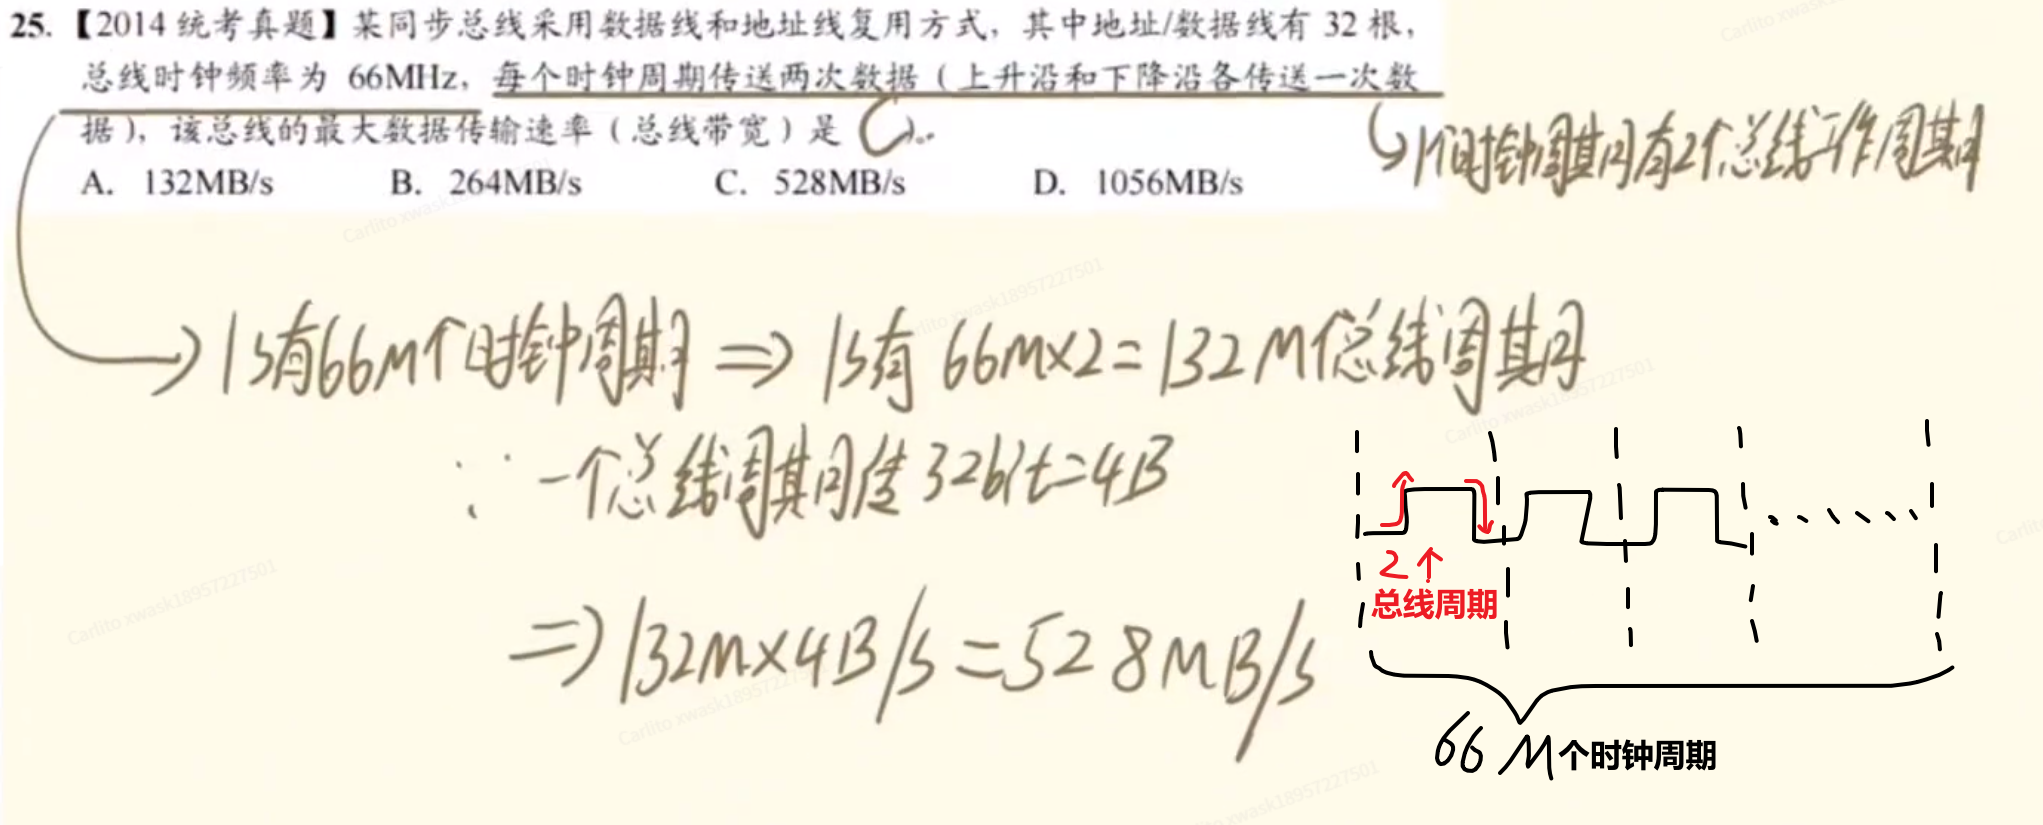 25.【2014 统考真题】某同步总线采用数据线和地址线复用方式，其中地址/数据线有 32 根，
总线时钟频率为 66MHz，每个时钟周期传送两次数据（上升沿和下降沿各传送一次数
据），该总线的最大数据传输速率（总线带宽）是（C）。
A. 132MB/s B. 264MB/s C. 528MB/s D. 1056MB/s
1个时钟周期内有2个总线工作周期
1s有66M个时钟周期 ⇒ 1s有 66M×2=132M个总线周期
∵ 一个总线周期传 32bit=4B
⇒ 132M×4B/s=528MB/s
2个
总线周期
66 M个时钟周期
Carlito xwask18957227501
Carlito xwask18957227501
Carlito xwask18957227501
Carlito xwask18957227501